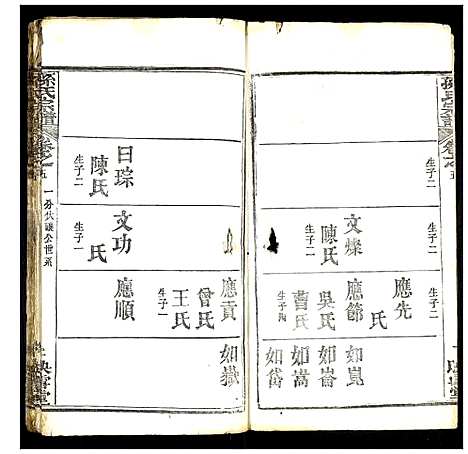 孫氏宗譜
卷之五
生子二
生子二
生子二
文燦
陳氏
生子二
應先
氏
應節
吳氏
曹氏
生子四
如崑
如崙
如嵩
如岱
應貢
曾氏
王氏
生子一
如嶽
日琮
陳氏
生子二
文功
氏
生子一
應順
孫氏宗譜
卷之五
映雪堂